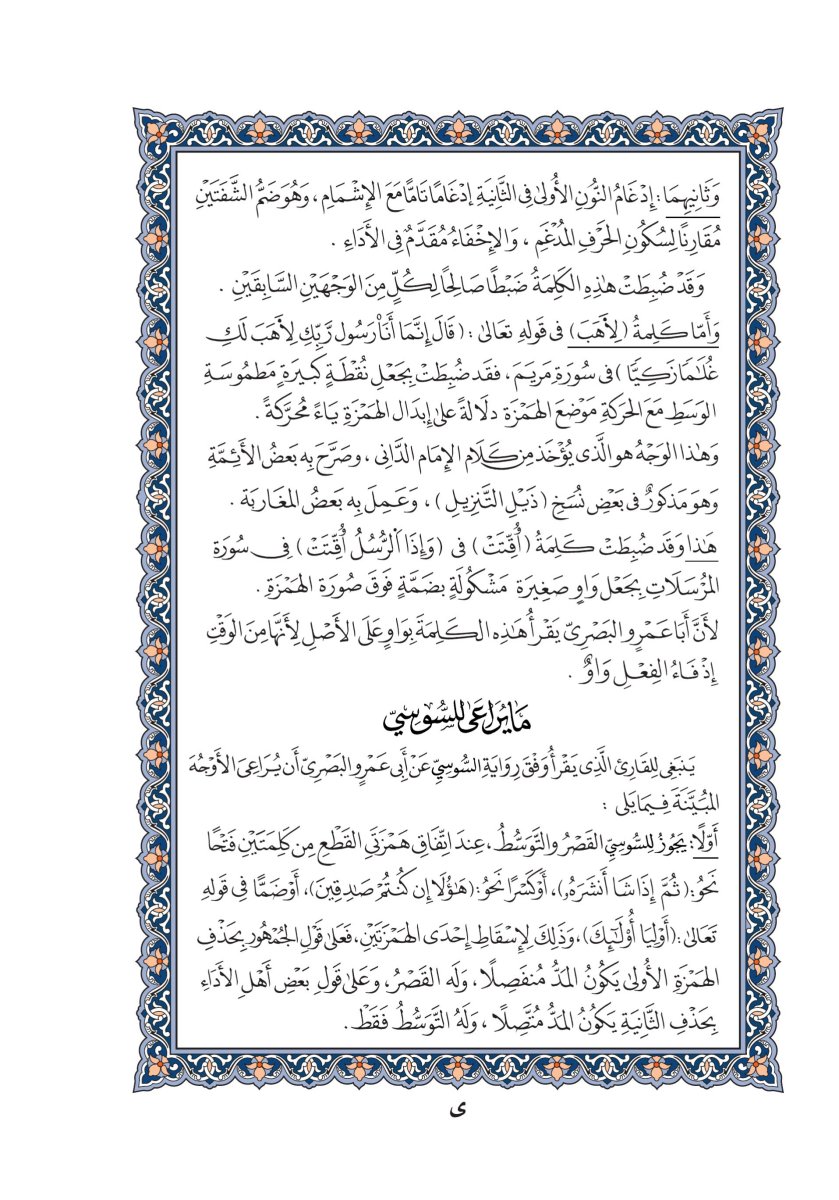 وَثَانِيهِمَا : إِدْغَامُ النُّونِ الأُولَىٰ فِى الثَّانِيَةِ إِدْغَامًا تَامًّا مَعَ الإِشْمَامِ ، وَهُوَ ضَمُّ الشَّفَتَيْنِ
مُقَارِنًا لِسُكُونِ الحَرْفِ المُدْغَمِ ، وَالإِخْفَاءُ مُقَدَّمٌ فِى الأَدَاءِ .
وَقَدْ ضُبِطَتْ هَٰذِهِ الكَلِمَةُ ضَبْطًا صَالِحًا لِكُلٍّ مِنَ الوَجْهَيْنِ السَّابِقَيْنِ .
وَأَمَّا كَلِمَةُ (لِأَهَبَ) فِى قَولِهِ تَعَالَىٰ : ( قَالَ إِنَّمَا أَنَا۠ رَسُول رَّبِّكِ لِأَهَبَ لَكِ
غُلَٰمًا زَكِيًّا ) فِى سُورَةِ مَريَمَ ، فَقَد ضُبِطَتْ بِجَعْلِ نُقْطَةٍ كَبِيرَةٍ مَطمُوسَةِ
الوَسَطِ مَعَ الحَرَكَةِ مَوْضِعَ الهَمْزَةِ دلَالَةً عَلَىٰ إِبدَالِ الهَمْزَةِ يَاءً مُحَرَّكَةً .
وَهَٰذَا الوَجْهُ هو الَّذى يُؤْخَذ مِن كَلَامِ الإِمَام الدَّانِى ، وصَرَّحَ بِه بَعضُ الأَئِمَّةِ
وَهوَ مَذكورٌ فى بَعْضِ نُسَخِ ( ذَيْلِ التَّنزِيلِ ) ، وَعَمِلَ بِه بَعضُ المَغَاربَة .
هَٰذَا وَقَد ضُبِطَتْ كَلِمَةُ ( أُقِّتَتْ ) فِى ( وَإِذَا ٱلرُّسُلُ أُقِّتَتْ ) فِى سُورَةِ
المُرْسَلَاتِ بِجَعْل وَاوٍ صَغِيرَةٍ مَشْكُولَةٍ بِضَمَّةٍ فَوْقَ صُورَةِ الهَمْزَةِ .
لأَنَّ أَبَا عَمْرٍو البَصْرِىّ يَقْرأُ هَٰذِهِ الكَلِمَةَ بِوَاوٍ عَلَى الأَصْلِ لِأَنَّهَا مِنَ الوَقْتِ
إِذْ فَاءُ الفِعْلِ وَاوٌ .
مَا يُرَاعَىٰ لِلسُّوسِيِّ
يَنبَغِى لِلقَارِئِ الَّذِى يَقْرأُ وَفْقَ رِوَايَةِ السُّوسِيِّ عَنْ أَبِى عَمْرٍو البَصْرِىّ أَن يُرَاعِىَ الأَوْجُهَ
المُبَيَّنَةَ فِيمَا يَلِى :
أَوَّلًا: يَجُوزُ لِلسُّوسِيِّ القَصْرُ وَالتَّوَسُّطُ ، عِندَ اتِّفَاقِ هَمْزَتَيِ القَطْعِ مِن كَلِمَتَيْنِ فَتْحًا
نَحوُ: ( ثُمَّ إِذَا شَا أَنشَرَهُۥ)، أَوْ كَسْرًا نَحوُ: (هَٰؤُلَا إِن كُنتُمْ صَٰدِقِينَ)، أَوْ ضَمًّا فِى قَولِهِ
تَعَالَىٰ :( أَوْلِيَا أُوْلَٰٓئِكَ)، وَذَلِكَ لِإِسْقَاطِ إِحْدَى الهَمْزَتَيْنِ، فَعَلَىٰ قَوْلِ الجُمْهُورِ بِحَذْفِ
الهَمْزَةِ الأُولَىٰ يَكُونُ المَدُّ مُنفَصِلًا ، وَلَه القَصْرُ، وَعَلَىٰ قَولِ بَعْضِ أَهْلِ الأَدَاءِ
بِحَذفِ الثَّانِيَةِ يَكُونُ المَدُّ مُتَّصِلًا ، وَلَهُ التَّوَسُّطُ فَقَطْ .
ى